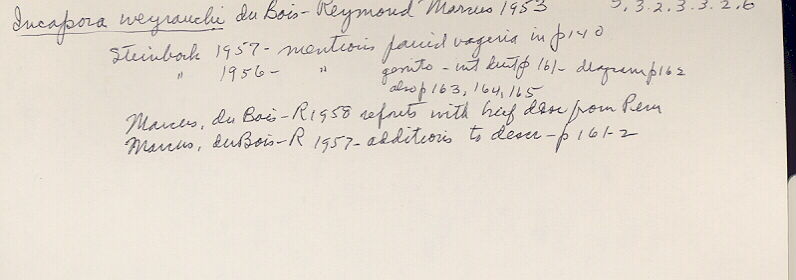 Incapora weyrauchi du Bois-Reymond Marcus 1953 5.3.2.3.3.2.6
Steinbock 1957- mentions paired vagina in p140
" 1956- " genito-int duct p 161- diagram p162
also p 163, 164, 165
Marcus, du Bois-R 1958 reports with brief desc from Peru
Marcus, duBois-R 1957- additions to descr- p 161-2